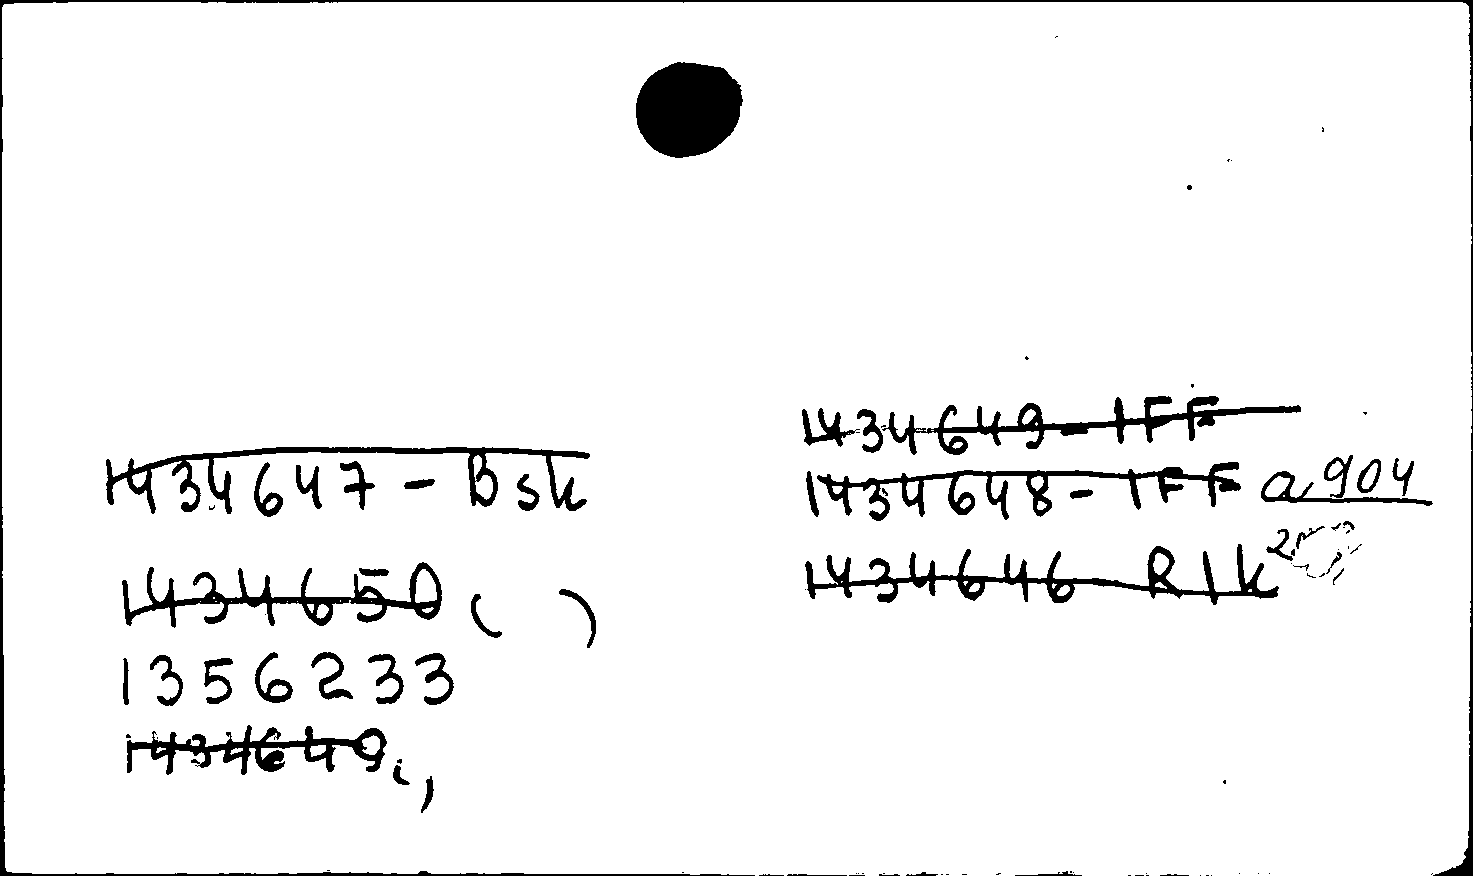 1434647 - Bsk
1434650 ( )
1356233
1434649 ( )
1434649 - IFF
1434648 - IFF a 904
1434646 RIK